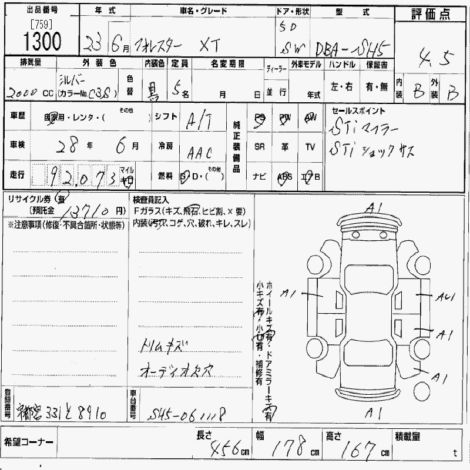 出品番号 年式 車名・グレード ドア・形状 型式 評価点
[759]
1300 23年 6月 フォレスター XT 5D SW DBA-SH5 4.5
排気量 外装色 色替 内装色 定員 名変期限 ディーラー 外車モデル ハンドル 保証書 内装 外装
2000cc シルバー (カラーNo. C3S) 黒 5名 月 日 並行 年式 左・右 有・無 B B
車歴 自家用・レンタ・(その他) シフト A/T 純正装備品 PS PW セールスポイント
STiマフラー
車検 28年 6月 冷房 AAC SR 革 TV STiショックサス
走行 92,073 マイル キロ 燃料 G D・(その他) ナビ ABS エアB
リサイクル券 (預託金 13710円) 検査員記入
Fガラス(キズ、飛石、ヒビ割、X要)
※注意事項(修復・不具合箇所・状態所等) 内装(汚穴、コゲ、穴、破れ、キレ、スレ)
A1
A1
A1
A1
A1
A1
小キズ有・小凹有・補修有
ホイールキズ有・ドアミラーキズ有
トリムキズ
オーディオ欠穴
登録番号 331 と 8910 車台番号 SH5-061118
希望コーナー 長さ 456cm 幅 178cm 高さ 167cm 積載量 t